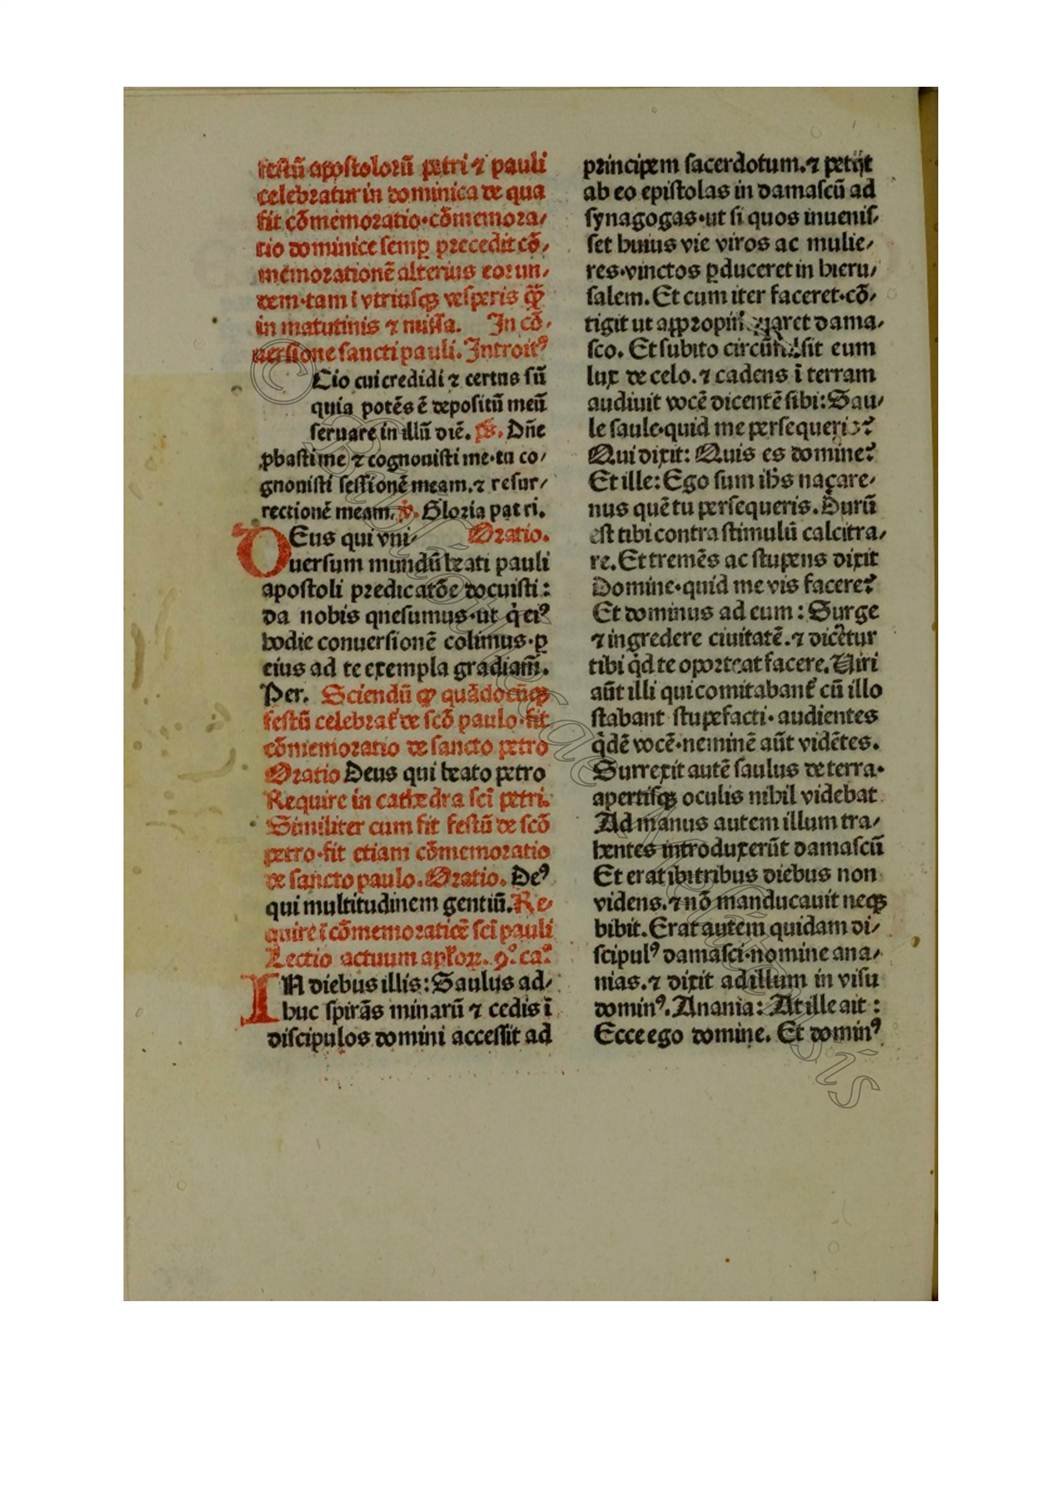 festū apostolorū petri ⁊ pauli
celebratur in dominica de qua
fit cōmemoratio·cōmemora/
tio dominice semꝑ precedit cō/
memorationē alterius eorun/
dem·tam ī vtriusqꝫ vesperis qͣꝫ
in matutinis ⁊ missa. In cō/
uersione sancti pauli. Introitꝰ
Cio cui credidi ⁊ certus sū
quia potēs ē depositū meū
seruare in illū diē. ps. Dñe
ꝓbasti me ⁊ cognouisti me·tu co/
gnouisti sessionē meam.⁊ resur/
rectionē meam. ℣. Gloria patri.
DEus qui vni/ Oratio.
uersum mundū beati pauli
apostoli predicatōe docuisti:
da nobis quesumus·ut q̇ eiꝰ
hodie conuersionē colimus·ꝑ
eius ad te exempla gradiam̄.
Per. Sciendū ꝙ quādocūqꝫ
festū celebrat᷑ de scō paulo·fit
cōmemoratio de sancto petro
Oratio Deus qui beato petro
Require in cathedra sci petri.
Similiter cum fit festū de scō
petro·fit etiam cōmemoratio
de sancto paulo. Oratio. Deꝰ
qui multitudinem gentiū. Re/
quire ī cōmemoratiōe sci pauli
Lectio actuum apl'oꝝ. 9º. caº.
IN diebus illis: Saulus ad/
huc spirās minarū ⁊ cedis ī
discipulos domini accessit ad
principem sacerdotum.⁊ petijt
ab eo epistolas in damascū ad
synagogas·ut si quos inuenis/
set huius vie viros ac mulie/
res·vinctos ꝑduceret in hieru/
salem. Et cum iter faceret·cō/
tigit ut appropinquaret dama/
sco. Et subito circūfulsit eum
lux de celo.⁊ cadens ī terram
audiuit vocē dicentē sibi: Sau/
le saule·quid me persequeris?
Qui dixit: Quis es domine?
Et ille: Ego sum ihs naçare/
nus quē tu persequeris. Durū
est tibi contra stimulū calcitra/
re. Et tremēs ac stupens dixit
Domine·quid me vis facere?
Et dominus ad eum: Surge
⁊ ingredere ciuitatē.⁊ dicet̄ur
tibi q̇d te oporteat facere. Uiri
aūt illi qui comitabant᷑ cū illo
stabant stupefacti·audientes
q̇dē vocē·neminē aūt vidētes.
Surrexit autē saulus de terra·
apertisqꝫ oculis nihil videbat
Ad manus autem illum tra/
hentes introduxerūt damascū
Et erat ibi tribus diebus non
videns.⁊ nō manducauit neqꝫ
bibit. Erat autem quidam di/
scipulꝰ damasci·nomine ana/
nias.⁊ dixit ad illum in visu
dominꝰ. Anania: At ille ait:
Ecce ego domine. Et dominꝰ